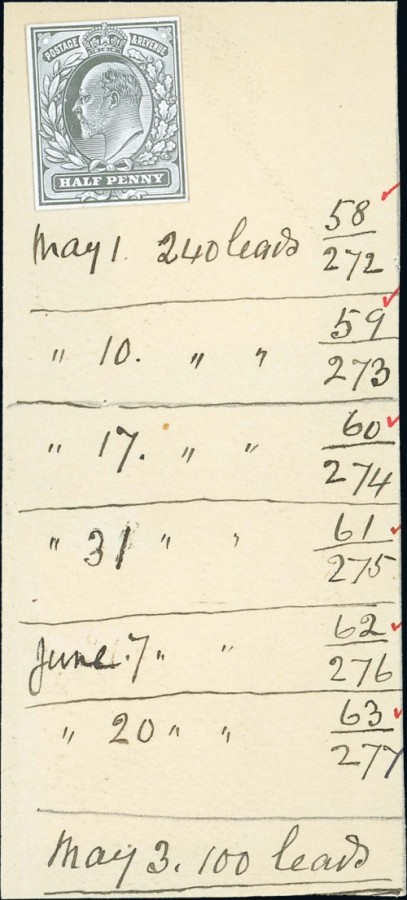 POSTAGE & REVENUE
HALF PENNY
May 1. 240 leads 58/272
" 10. " " 59/273
" 17. " " 60/274
" 31 " " 61/275
June 7 " " 62/276
" 20 " " 63/277
May 3. 100 leads